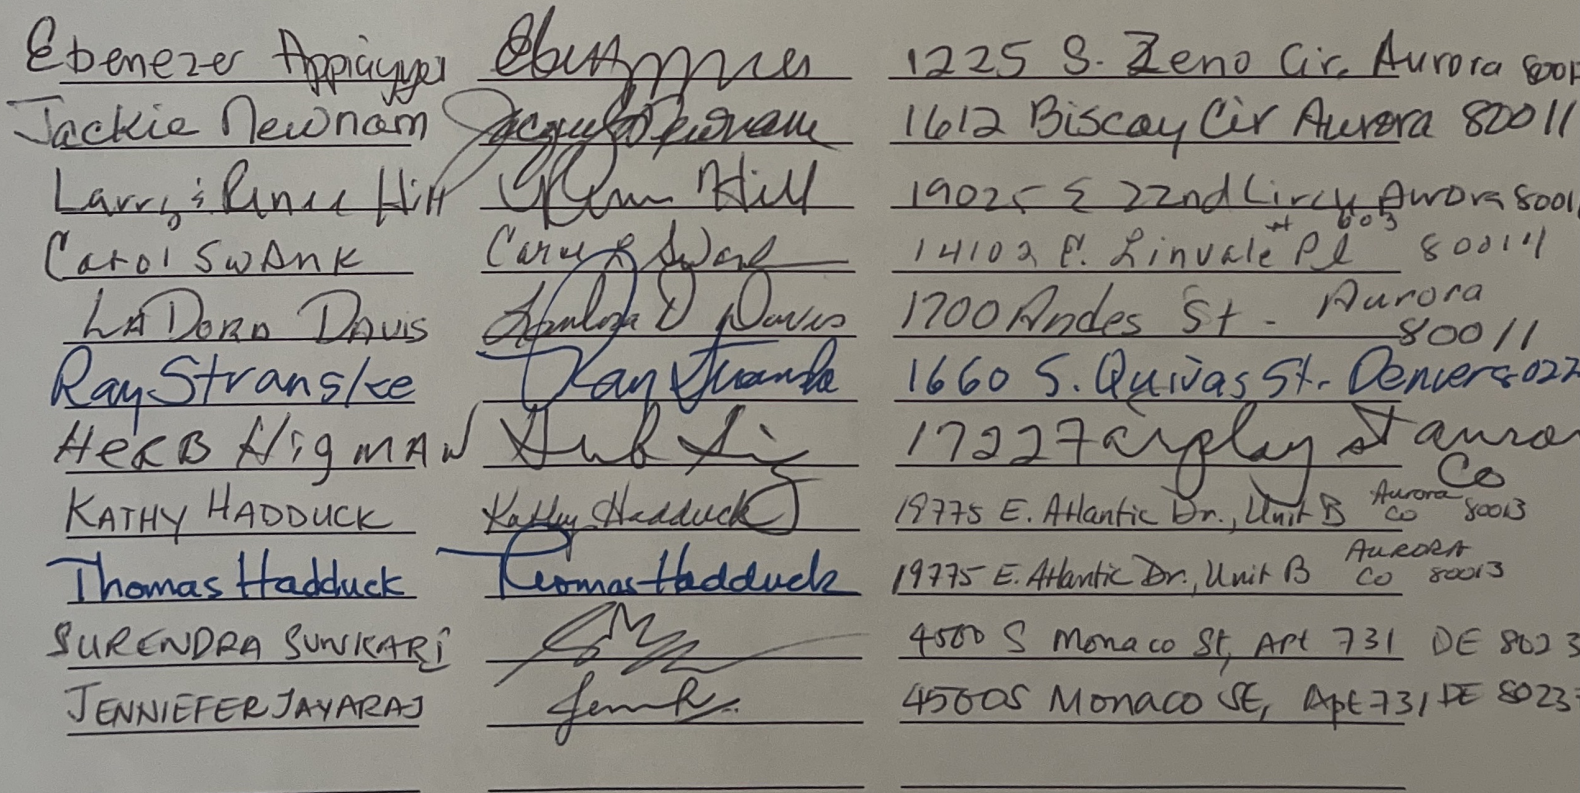 Ebenezer Appiagyei 1225 S. Zeno Cir. Aurora 8001
Jackie Newnam Jacquel Newnam 1612 Biscay Cir Aurora 80011
Larry & Renee Hill Renee Hill 19025 E 22nd Circle Aurora 8001
Carol Swank Carol Swank 14102 E. Linvale Pl #603 80014
LaDora Davis LaDora D Davis 1700 Andes St - Aurora 80011
Ray Stranske Ray Stranske 1660 S. Quivas St. Denver 8022
Herb Higman Herb 17227 St Auro
Co
KATHY HADDUCK Kathy Hadduck 19775 E. Atlantic Dr., Unit B Aurora CO 80013
Thomas Hadduck Thomas Hadduck 19775 E. Atlantic Dr., Unit B AURORA CO 80013
SURENDRA SUNKARI 4500 S Monaco St, Apt 731 DE 8023
JENNIEFER JAYARAJ 4500 S Monaco St, Apt 731 DE 8023